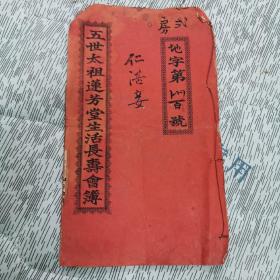 弍房
地字第四百號
仁浩妾
五世太祖蓮芳堂生活長壽會簿
用